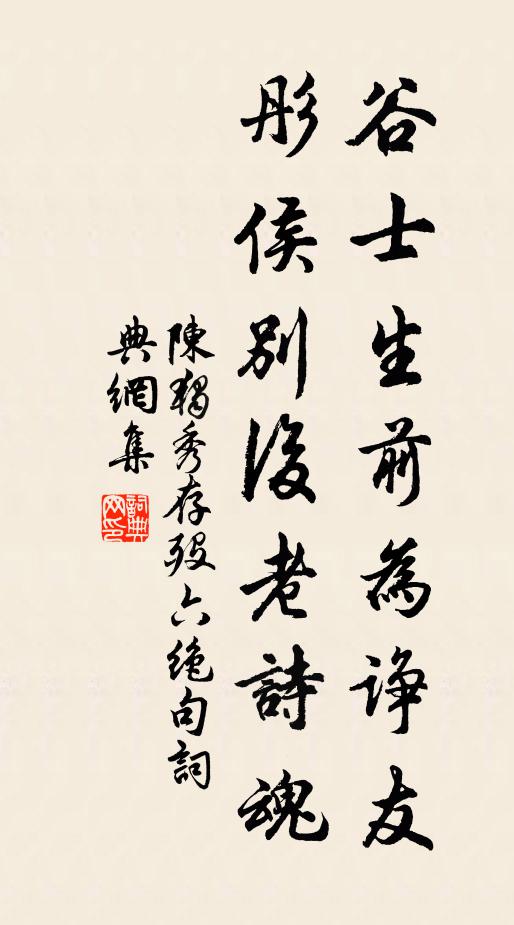 谷士生前為諍友
彤侯別後老詩魂
陳獨秀存歿六絕句詞
典網集
詞典網印